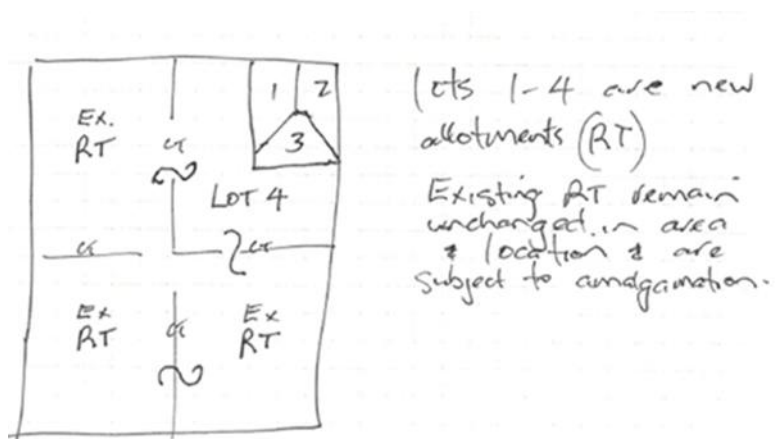 Ex.
RT
1
2
3
LOT 4
Ex
RT
Ex
RT
Lots 1-4 are new
allotments (RT)
Existing RT remain
unchanged in area
& location & are
subject to amalgamation.